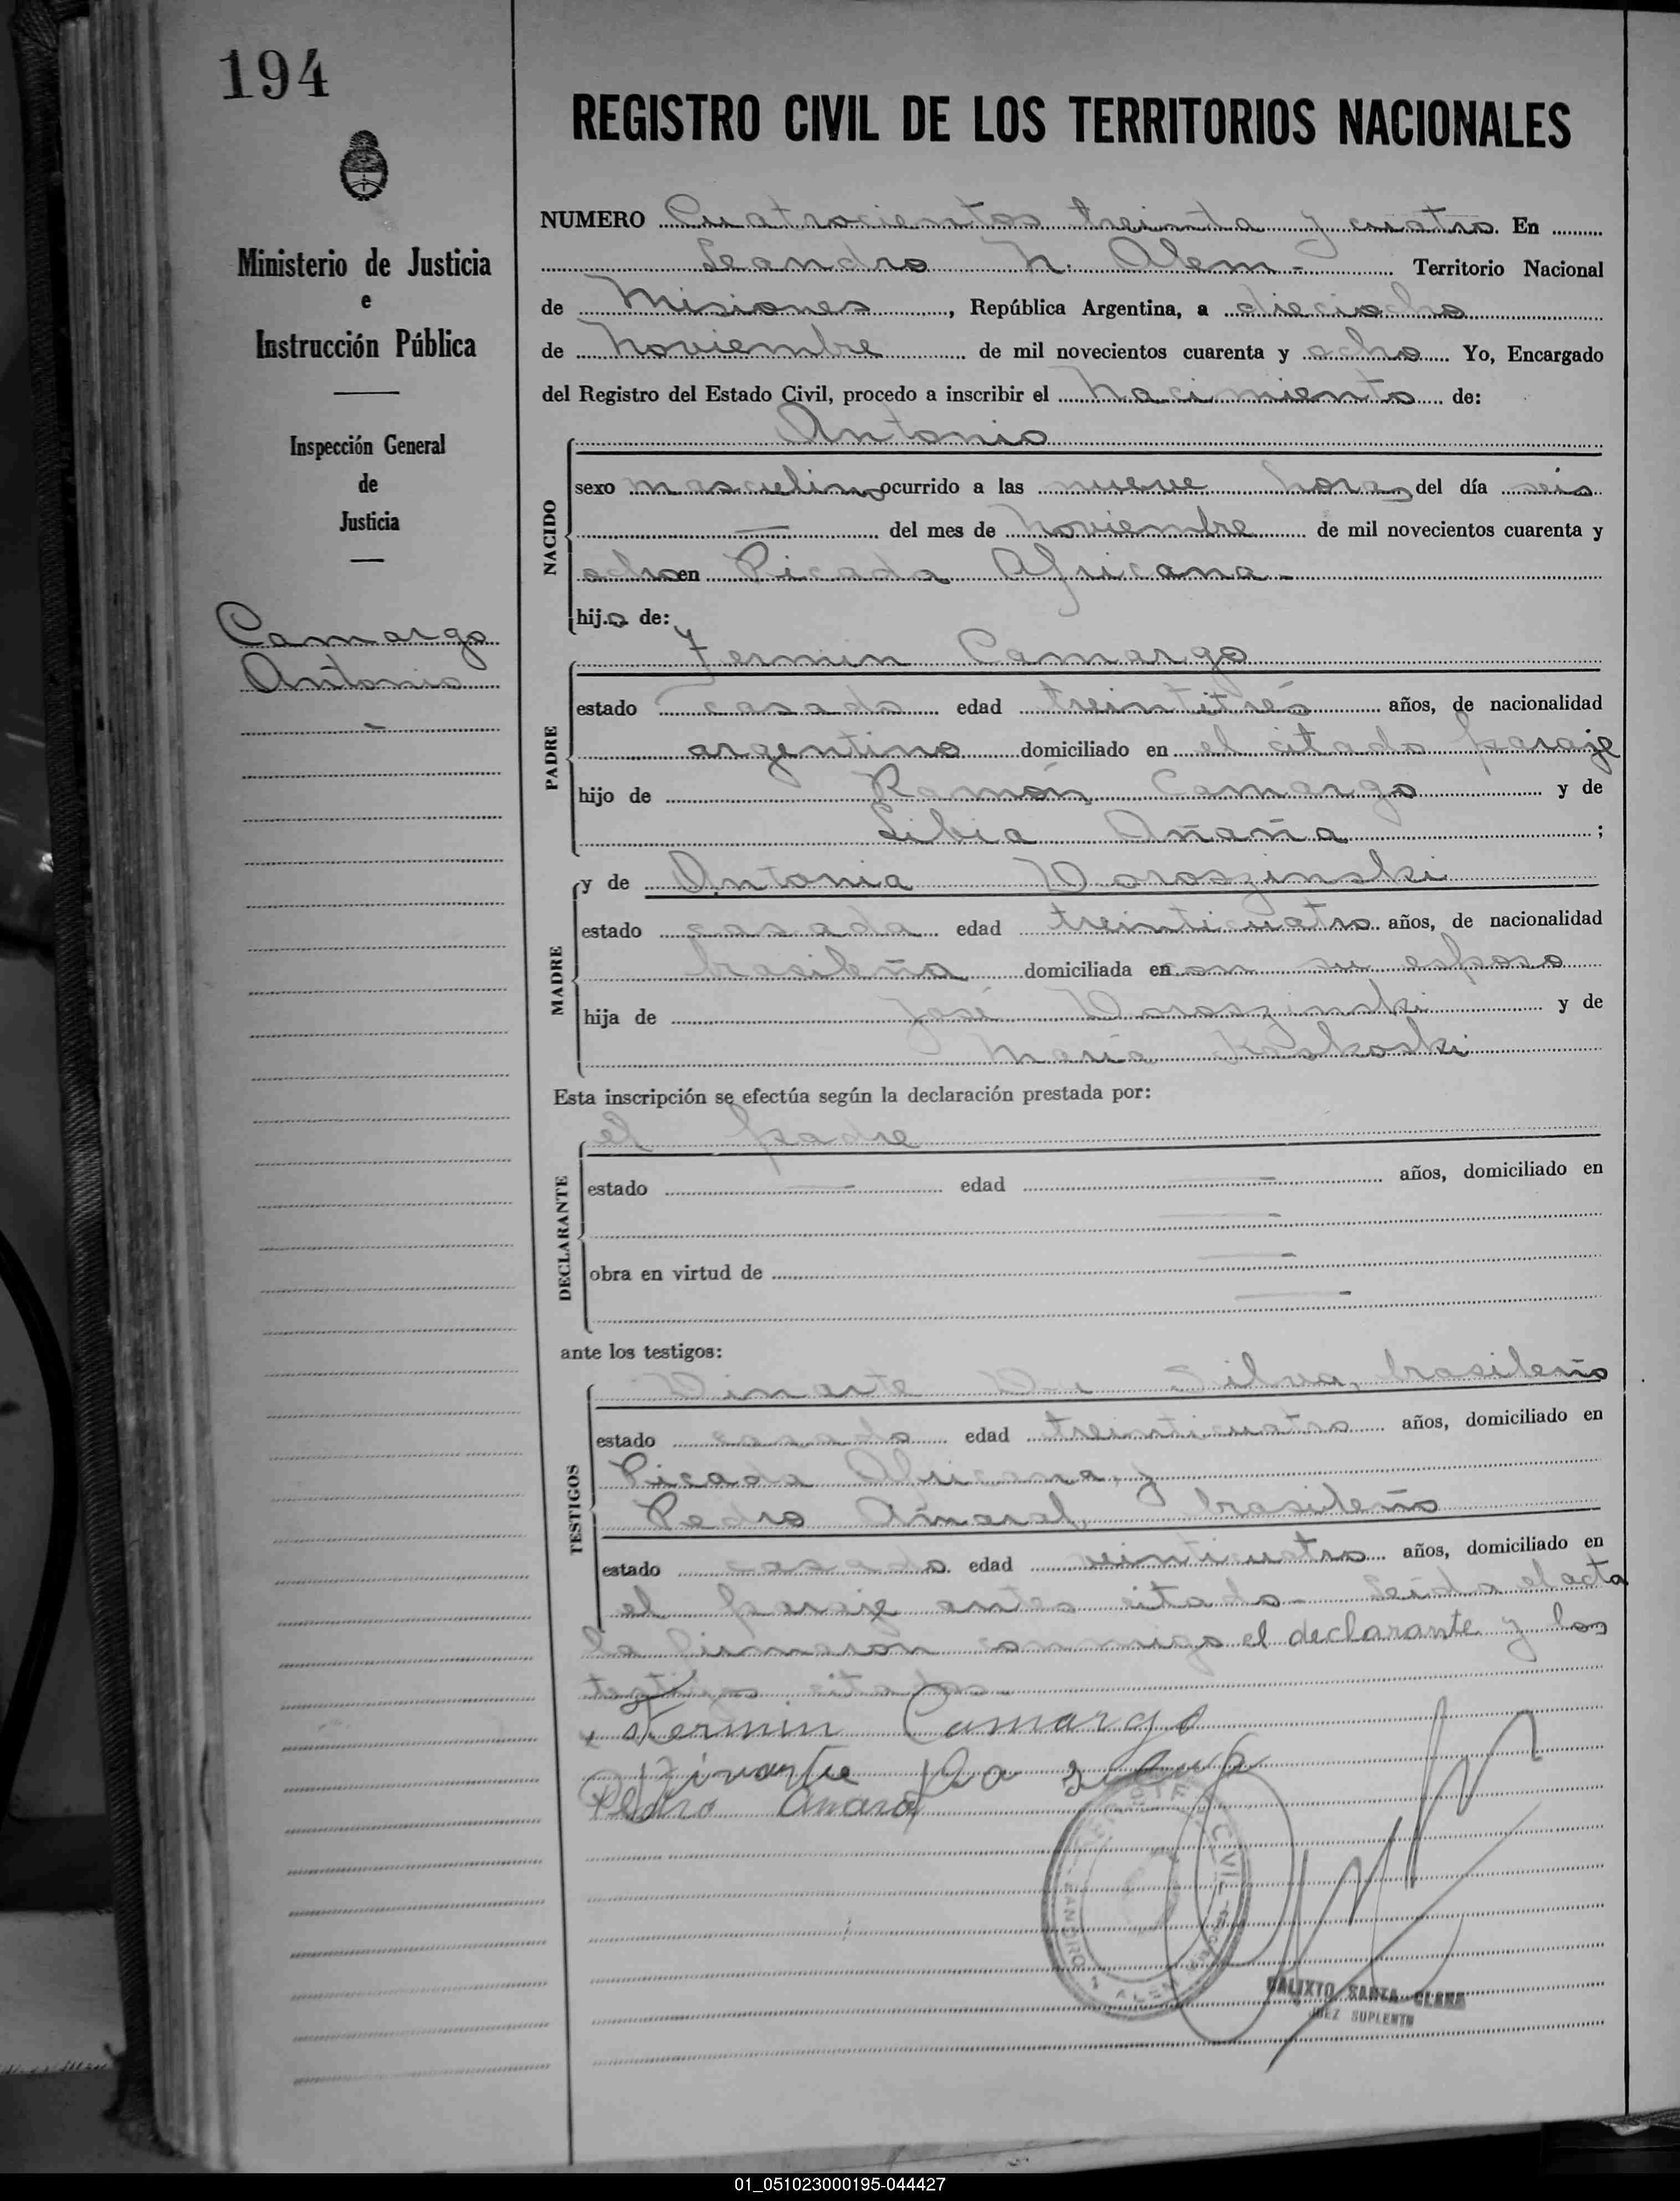 194
Ministerio de Justicia
e
Instrucción Pública
Inspección General
de
Justicia
Camargo
Antonio
REGISTRO CIVIL DE LOS TERRITORIOS NACIONALES
NUMERO Cuatrocientos treinta y cuatro. En
Leandro N. Alem - Territorio Nacional
de Misiones, República Argentina, a dieciocho
de Noviembre de mil novecientos cuarenta y ocho Yo, Encargado
del Registro del Estado Civil, procedo a inscribir el Nacimiento de:
Antonio
NACIDO
sexo masculino ocurrido a las nueve horas del día seis
del mes de Noviembre de mil novecientos cuarenta y
ocho en Picada Africana -
hijo de:
Fermin Camargo
PADRE
estado casado edad treintitrés años, de nacionalidad
argentino domiciliado en el citado paraje
hijo de Ramón Camargo y de
Libia Añaña ;
y de Antonia Doroszinski
MADRE
estado casada edad treinticuatro años, de nacionalidad
brasileña domiciliada en con su esposo
hija de José Doroszinski y de
María Koskoski
Esta inscripción se efectúa según la declaración prestada por:
el padre
DECLARANTE
estado — edad — años, domiciliado en
obra en virtud de
ante los testigos:
Dinarte Da Silva, brasileño
TESTIGOS
estado casado edad treinticuatro años, domiciliado en
Picada Africana, y
Pedro Amaral, brasileño
estado casado edad veinticuatro años, domiciliado en
el paraje antes citado - Leida el acta
la firmaron conmigo el declarante y los
testigos citados -
Fermin Camargo
Dinarte Da Silva
Pedro Amaral
CIVIL
LEANDRO N. ALEM
CALIXTO SANTA CLARA
JUEZ SUPLENTE
01_051023000195-044427